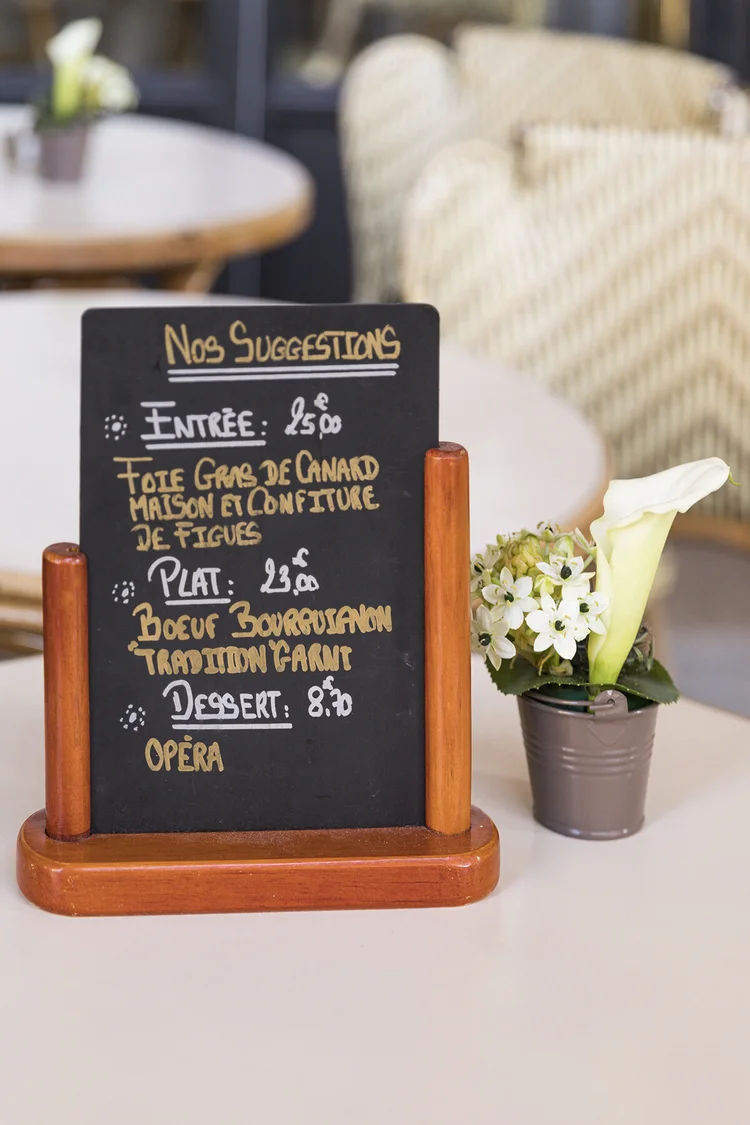 NOS SUGGESTIONS
ENTRÉE: 25,00€
FOIE GRAS DE CANARD
MAISON ET CONFITURE
DE FIGUES
PLAT: 23,00€
BOEUF BOURGUIGNON
"TRADITION" GARNI
DESSERT: 8,70€
OPÉRA